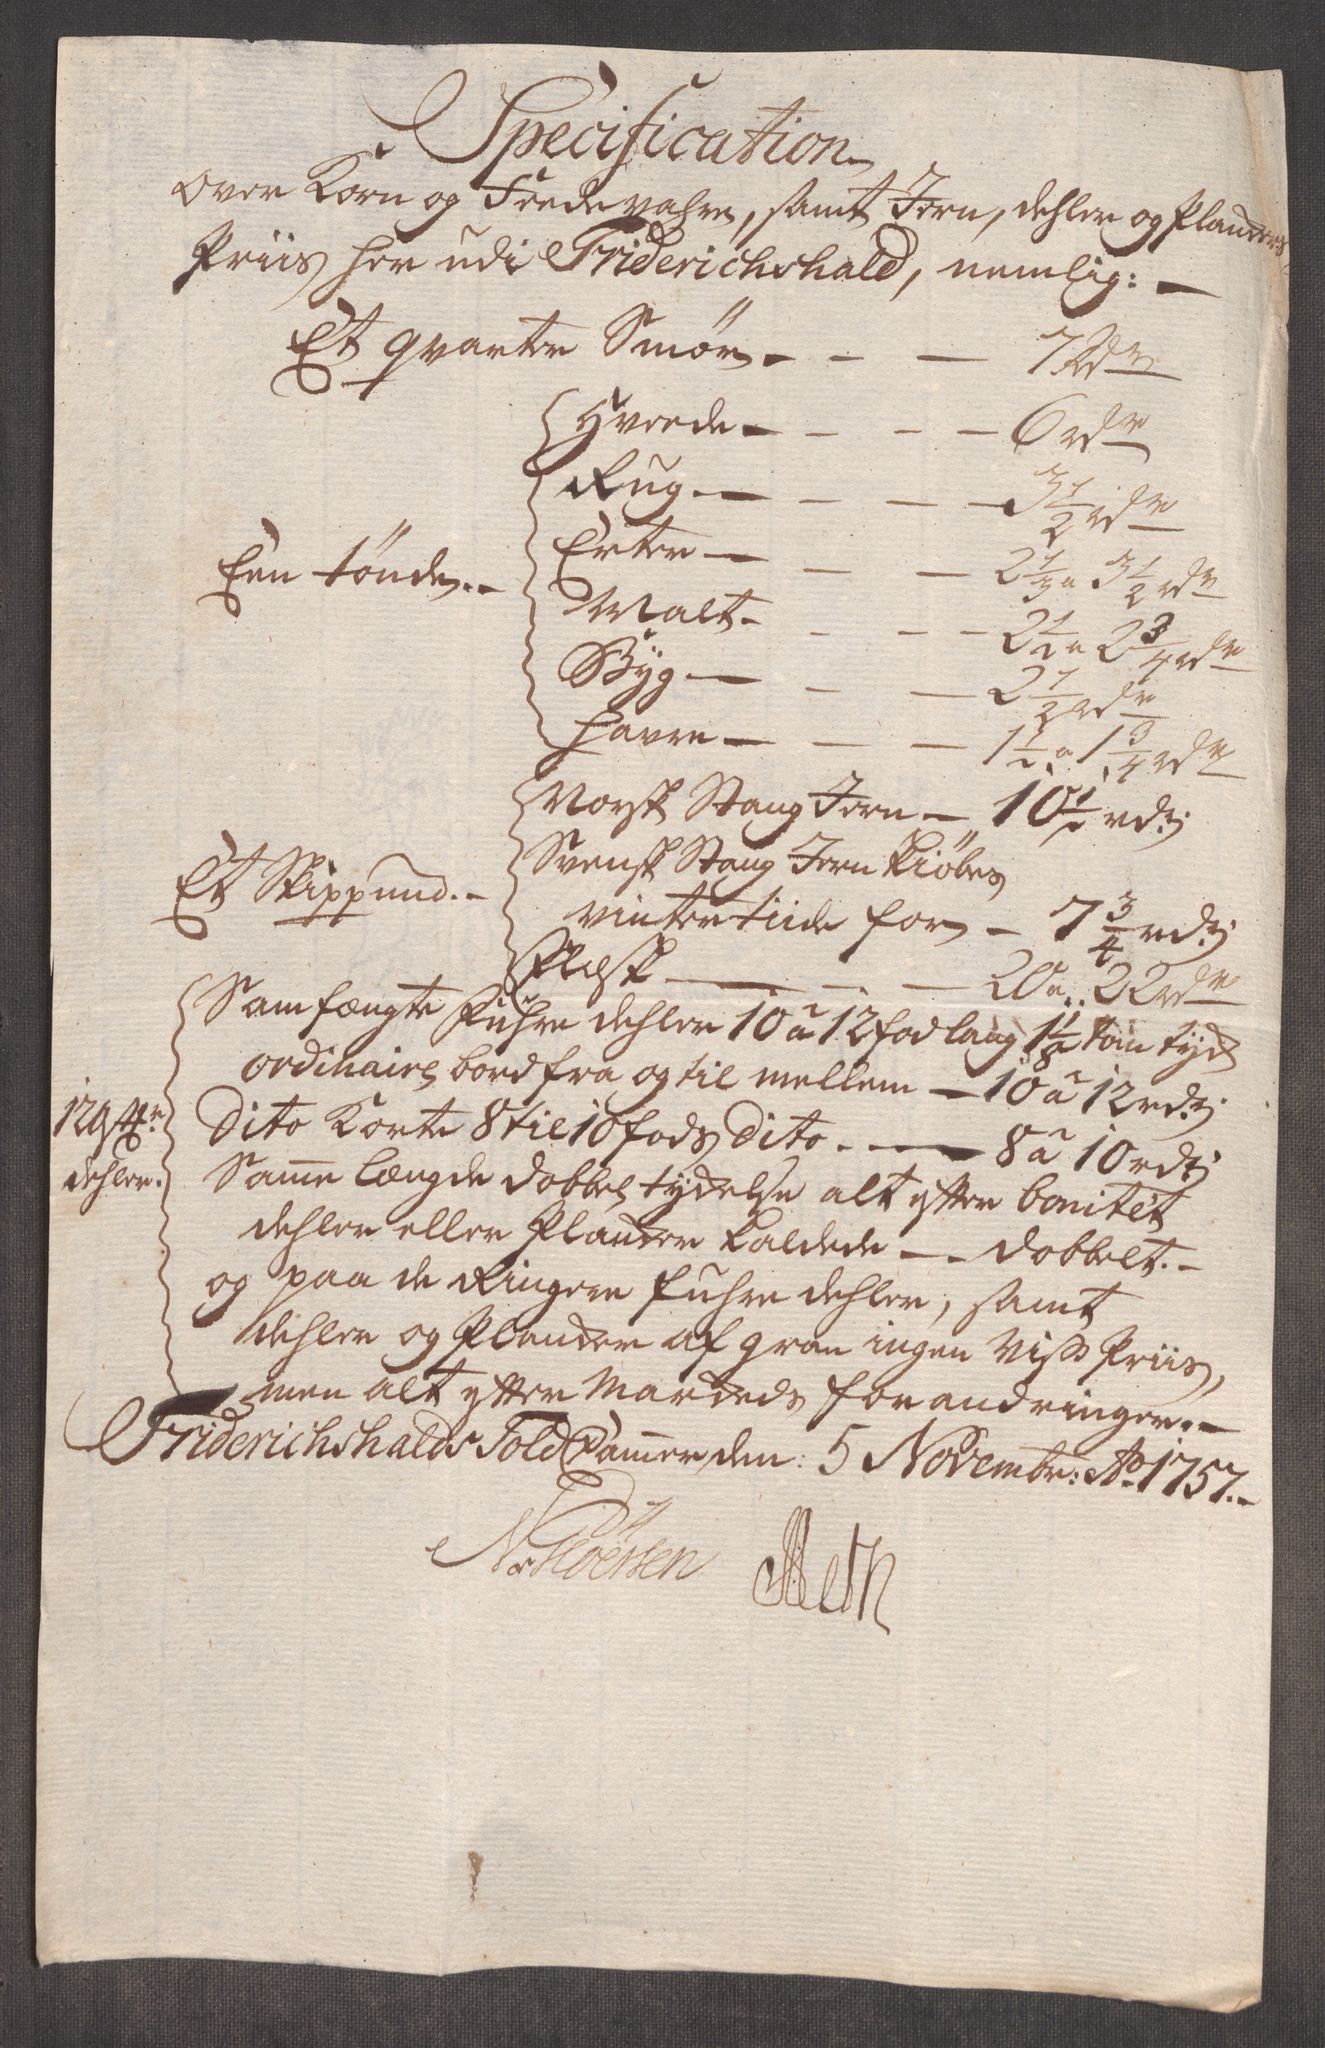 Specification
Over Korn og Feede vahre, samt Jern, dehler og Plancker
Priis her udi Friderichshald, nemlig:
Et qvarter Smör - - - 7 Rdr
Hvede - - - - 6 rdr
Rug - - - - 3 1/2 rdr
Een tönde - Erter - - - 2 1/2 a 3 1/2 rdr
Malt - - - - 2 1/2 a 2 3/4 rdr
Byg - - - 2 1/2 rdr
Havre - - - 1 1/2 a 1 3/4 rdr
Norsk Stang Jern - 10 1/2 rdr
Et Skippund - Svensk Stang Jern kiöbes
vintertiide for - 7 3/4 rdr
Flesk - - - 20 a 22 rdr
Samfængte Fuhre dehler 10 a 12 fod lang 1 1/8 tom tyck
ordinaire bord fra og til mellem - 10 a 12 rdr
dito Korte 8 til 10 fods dito - - 8 a 10 rdr
dehler. Samme længde dobbel tydelse alt efter bonitet
dehler eller Plancker kaldede - - dobbelt -
og paa de Ringere fuhre dehler, samt
dehler og Plancker af gran ingen viss Priis,
men alt efter Marckeds forandringer. -
Friderichshalds Told Cammer den: 5 Novembr: Ao 1757. -